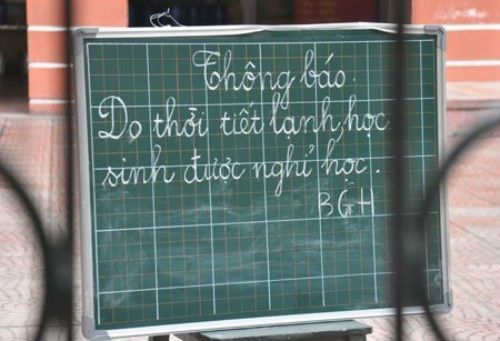 Thông báo.
Do thời tiết lạnh, học
sinh được nghỉ học.
BGH